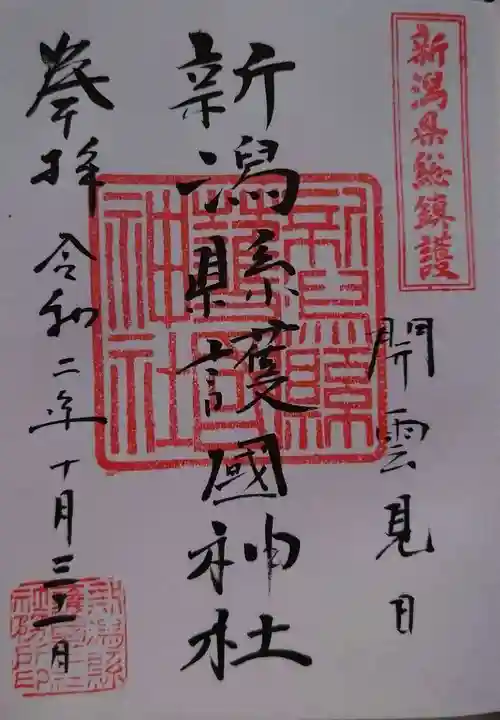 新潟県総鎮護
開雲見日
新潟縣護國神社
新潟縣
護國
神社
奉拝
令和二年十月三十一日
新潟縣
護國神社
社務所印